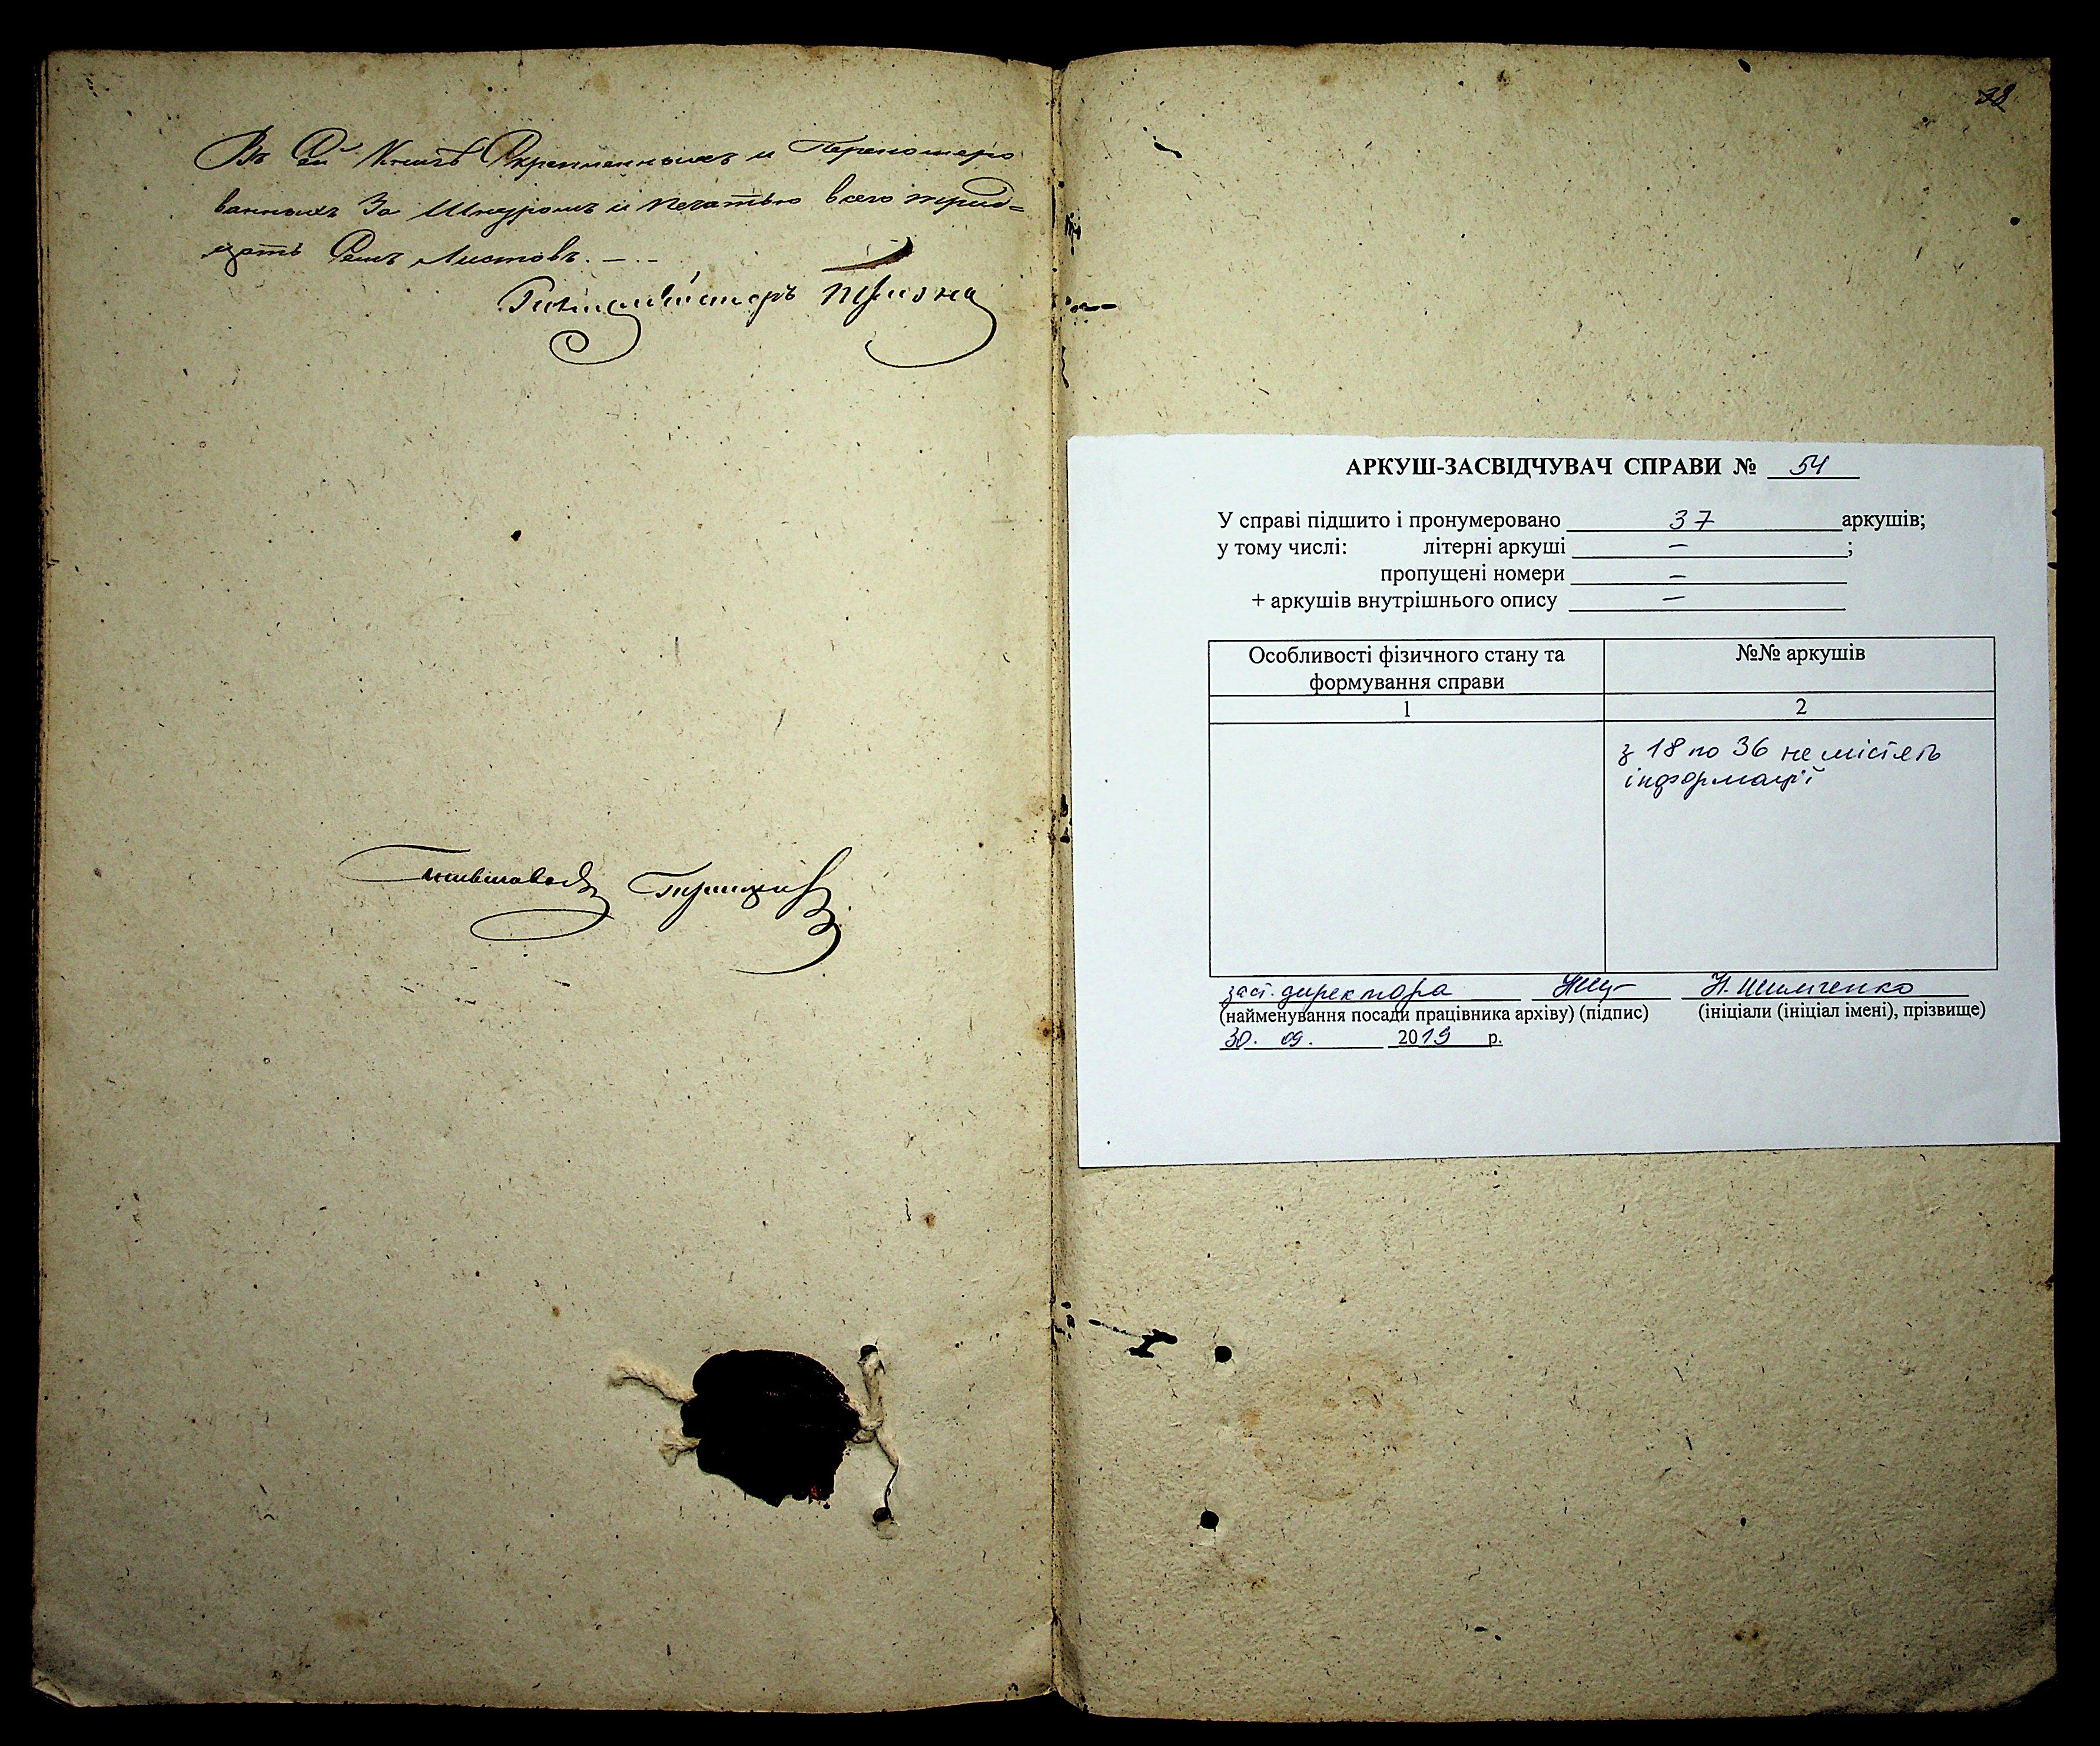 Въ Сей Книгѣ Скрепленныхъ и Перенумеро
ванныхъ За Шнуромъ и печатью всего трид=
цать Семъ Листовъ. — . —
38
АРКУШ-ЗАСВІДЧУВАЧ СПРАВИ № 54
У справі підшито і пронумеровано 37 аркушів;
у тому числі: літерні аркуші — ;
пропущені номери —
+ аркушів внутрішнього опису —
Особливості фізичного стану та
формування справи
№№ аркушів
1
2
з 18 по 36 не містять
інформації
заст. директора Н. Шимченко
(найменування посади працівника архіву) (підпис) (ініціали (ініціал імені), прізвище)
30. 09. 2019 р.